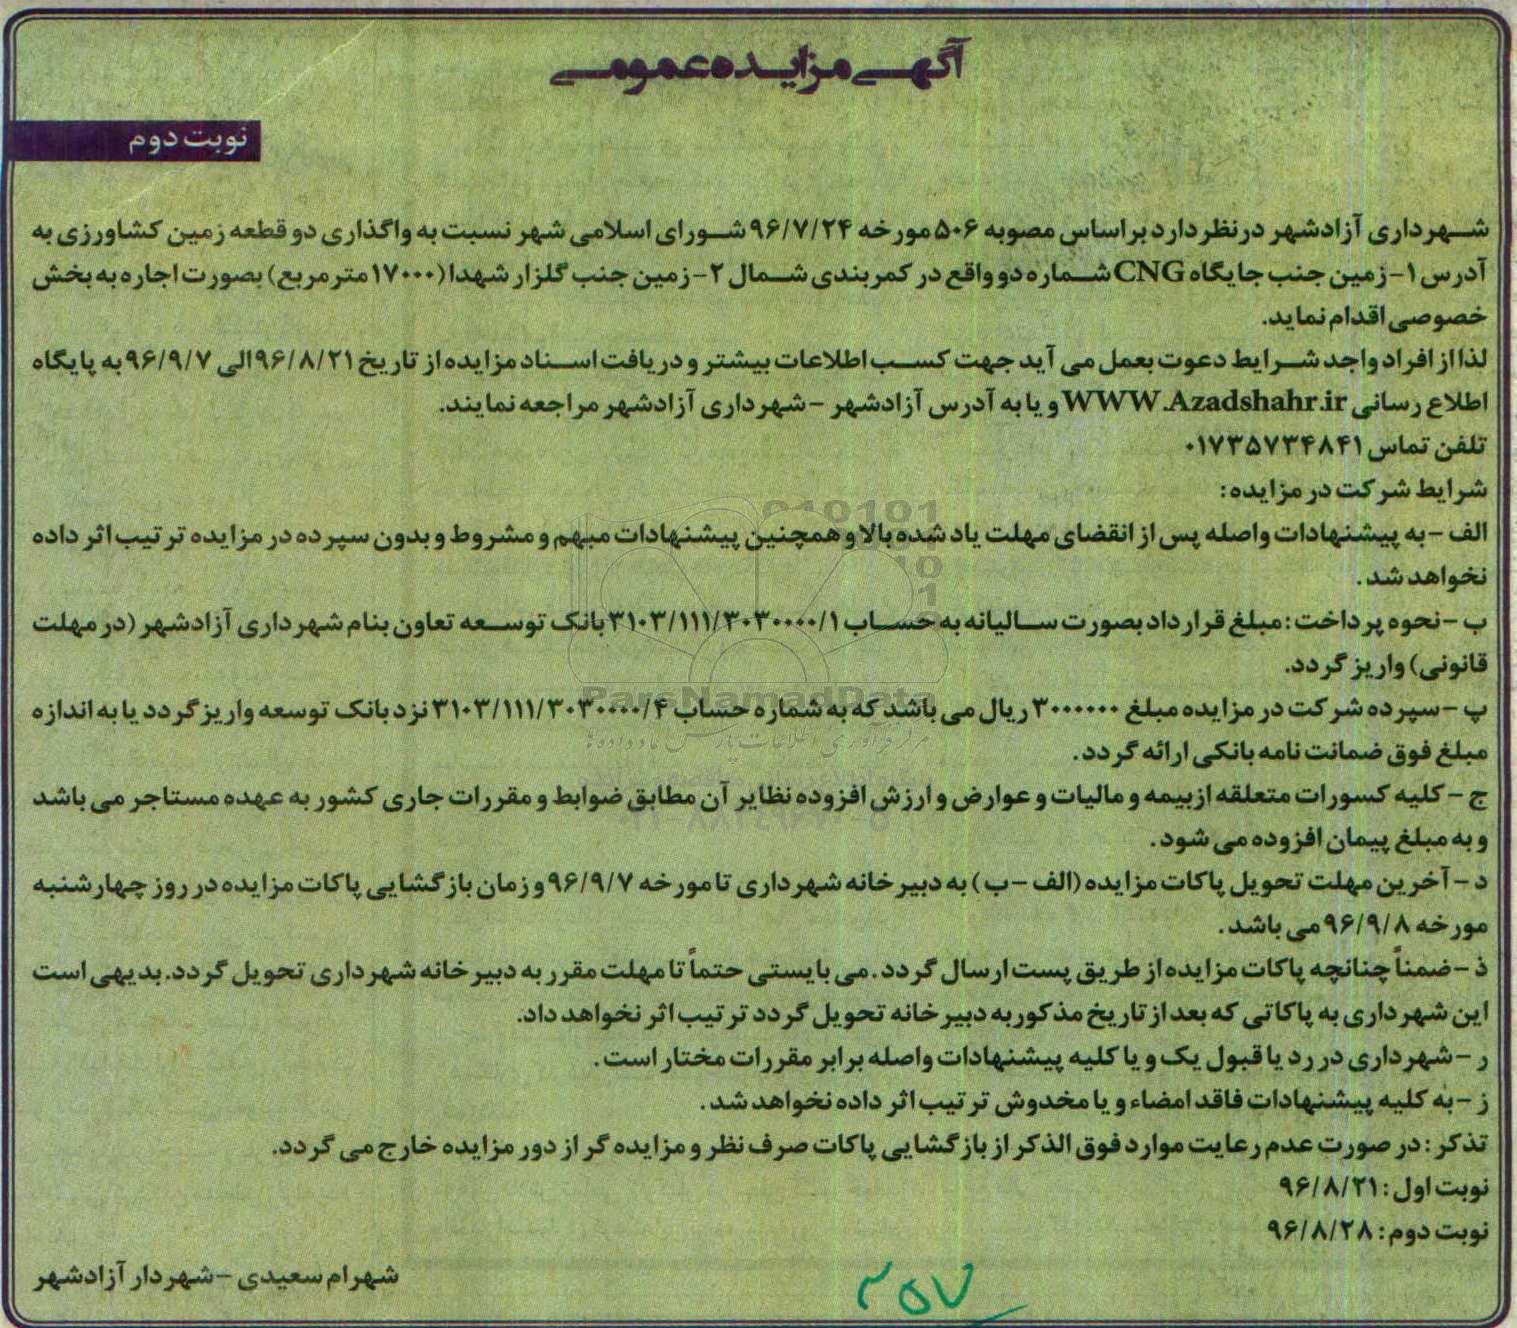 آگهی مزایده عمومی
نوبت دوم
شهرداری آزادشهر درنظر دارد براساس مصوبه ۵۰۶ مورخه ۹۶/۷/۲۴ شورای اسلامی شهر نسبت به واگذاری دو قطعه زمین کشاورزی به
آدرس ۱- زمین جنب جایگاه CNG شماره دو واقع در کمربندی شمال ۲- زمین جنب گلزار شهدا (۱۷۰۰۰ مترمربع) بصورت اجاره به بخش
خصوصی اقدام نماید.
لذا از افراد واجد شرایط دعوت بعمل می آید جهت کسب اطلاعات بیشتر و دریافت اسناد مزایده از تاریخ ۹۶/۸/۲۱ الی ۹۶/۹/۷ به پایگاه
اطلاع رسانی WWW.Azadshahr.ir و یا به آدرس آزادشهر – شهرداری آزادشهر مراجعه نمایند.
تلفن تماس ۰۱۷۳۵۷۳۴۸۴۱
شرایط شرکت در مزایده :
الف – به پیشنهادات واصله پس از انقضای مهلت یاد شده بالا و همچنین پیشنهادات مبهم و مشروط و بدون سپرده در مزایده ترتیب اثر داده
نخواهد شد .
ب – نحوه پرداخت : مبلغ قرارداد بصورت سالیانه به حساب ۳۱۰۳/۱۱۱/۳۰۳۰۰۰۰/۱ بانک توسعه تعاون بنام شهرداری آزادشهر (در مهلت
قانونی) واریز گردد.
پ – سپرده شرکت در مزایده مبلغ ۳۰۰۰۰۰۰ ریال می باشد که به شماره حساب ۳۱۰۳/۱۱۱/۳۰۳۰۰۰۰/۴ نزد بانک توسعه واریز گردد یا به اندازه
مبلغ فوق ضمانت نامه بانکی ارائه گردد .
ج – کلیه کسورات متعلقه ازبیمه و مالیات و عوارض و ارزش افزوده نظایر آن مطابق ضوابط و مقررات جاری کشور به عهده مستاجر می باشد
و به مبلغ پیمان افزوده می شود .
د – آخرین مهلت تحویل پاکات مزایده (الف – ب) به دبیرخانه شهرداری تا مورخه ۹۶/۹/۷ و زمان بازگشایی پاکات مزایده در روز چهارشنبه
مورخه ۹۶/۹/۸ می باشد .
ذ – ضمناً چنانچه پاکات مزایده از طریق پست ارسال گردد . می بایستی حتماً تا مهلت مقرر به دبیرخانه شهرداری تحویل گردد. بدیهی است
این شهرداری به پاکاتی که بعد از تاریخ مذکور به دبیرخانه تحویل گردد ترتیب اثر نخواهد داد.
ر – شهرداری در رد یا قبول یک و یا کلیه پیشنهادات واصله برابر مقررات مختار است .
ز – به کلیه پیشنهادات فاقد امضاء و یا مخدوش ترتیب اثر داده نخواهد شد .
تذکر : در صورت عدم رعایت موارد فوق الذکر از بازگشایی پاکات صرف نظر و مزایده گر از دور مزایده خارج می گردد.
نوبت اول : ۹۶/۸/۲۱
نوبت دوم : ۹۶/۸/۲۸
شهرام سعیدی – شهردار آزادشهر
ParsNamadData